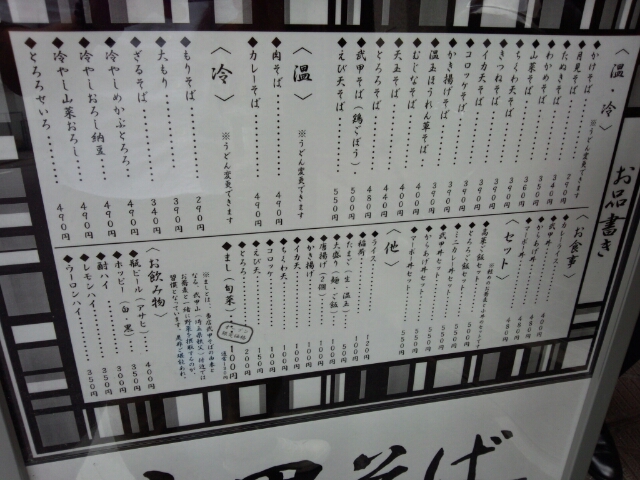 お品書き
〈温・冷〉
※うどん変更できます
◆かけそば………290円
◆月見そば
◆たぬきそば
◆わかめそば………340円
◆山菜そば………350円
◆ちくわ天そば………360円
◆きつねそば………390円
◆イカ天そば………390円
◆コロッケそば………390円
◆かき揚げそば………390円
◆温玉ほうれん草そば………390円
◆むじなそば………400円
◆天玉そば………440円
◆とろろそば………480円
◆武甲そば(鶏ごぼう)………500円
◆えび天そば………550円
〈温〉
※うどん変更できます
◆肉そば………490円
◆カレーそば………490円
〈冷〉
※うどん変更できます
◆もりそば………290円
◆大もり………390円
◆ざるそば………340円
◆冷やしめかぶとろろ………490円
◆冷やしおろし納豆………490円
◆冷やし山菜おろし………490円
◆とろろせいろ………490円
〈お食事〉
◆カレーライス
◆武甲丼
◆からあげ丼
◆マーボー丼
〈セット〉
◆高菜ご飯セット
◆とろろご飯セット
◆ミニカレー丼セット………550円
◆武甲丼セット………550円
◆からあげ丼セット………550円
◆マーボー丼セット………550円
〈他〉
◆ライス………120円
◆稲荷………100円
◆たまご(生、温玉)………50円
◆大盛り(麺、ご飯)………100円
◆唐揚げ(2個)………100円
◆かき揚げ………100円
◆イカ天………100円
◆ちくわ天………100円
◆コロッケ………100円
◆えび天………150円
◆とろろ………200円
◆まし(旬菜)………100円
〈お飲み物〉
◆瓶ビール(アサヒ)………400円
◆ホッピー(白・黒)………350円
◆酎ハイ………300円
◆レモンハイ………350円
◆ウーロンハイ………350円
そば